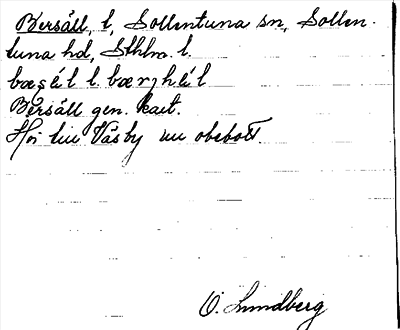 Bersäll, l, Sollentuna sn, Sollen-
tuna hd, Sthlm. l.
bæşél l. bærjhél
Bersäll gen. kart.
Hör till Väsby nu obebott.
O. Lundberg